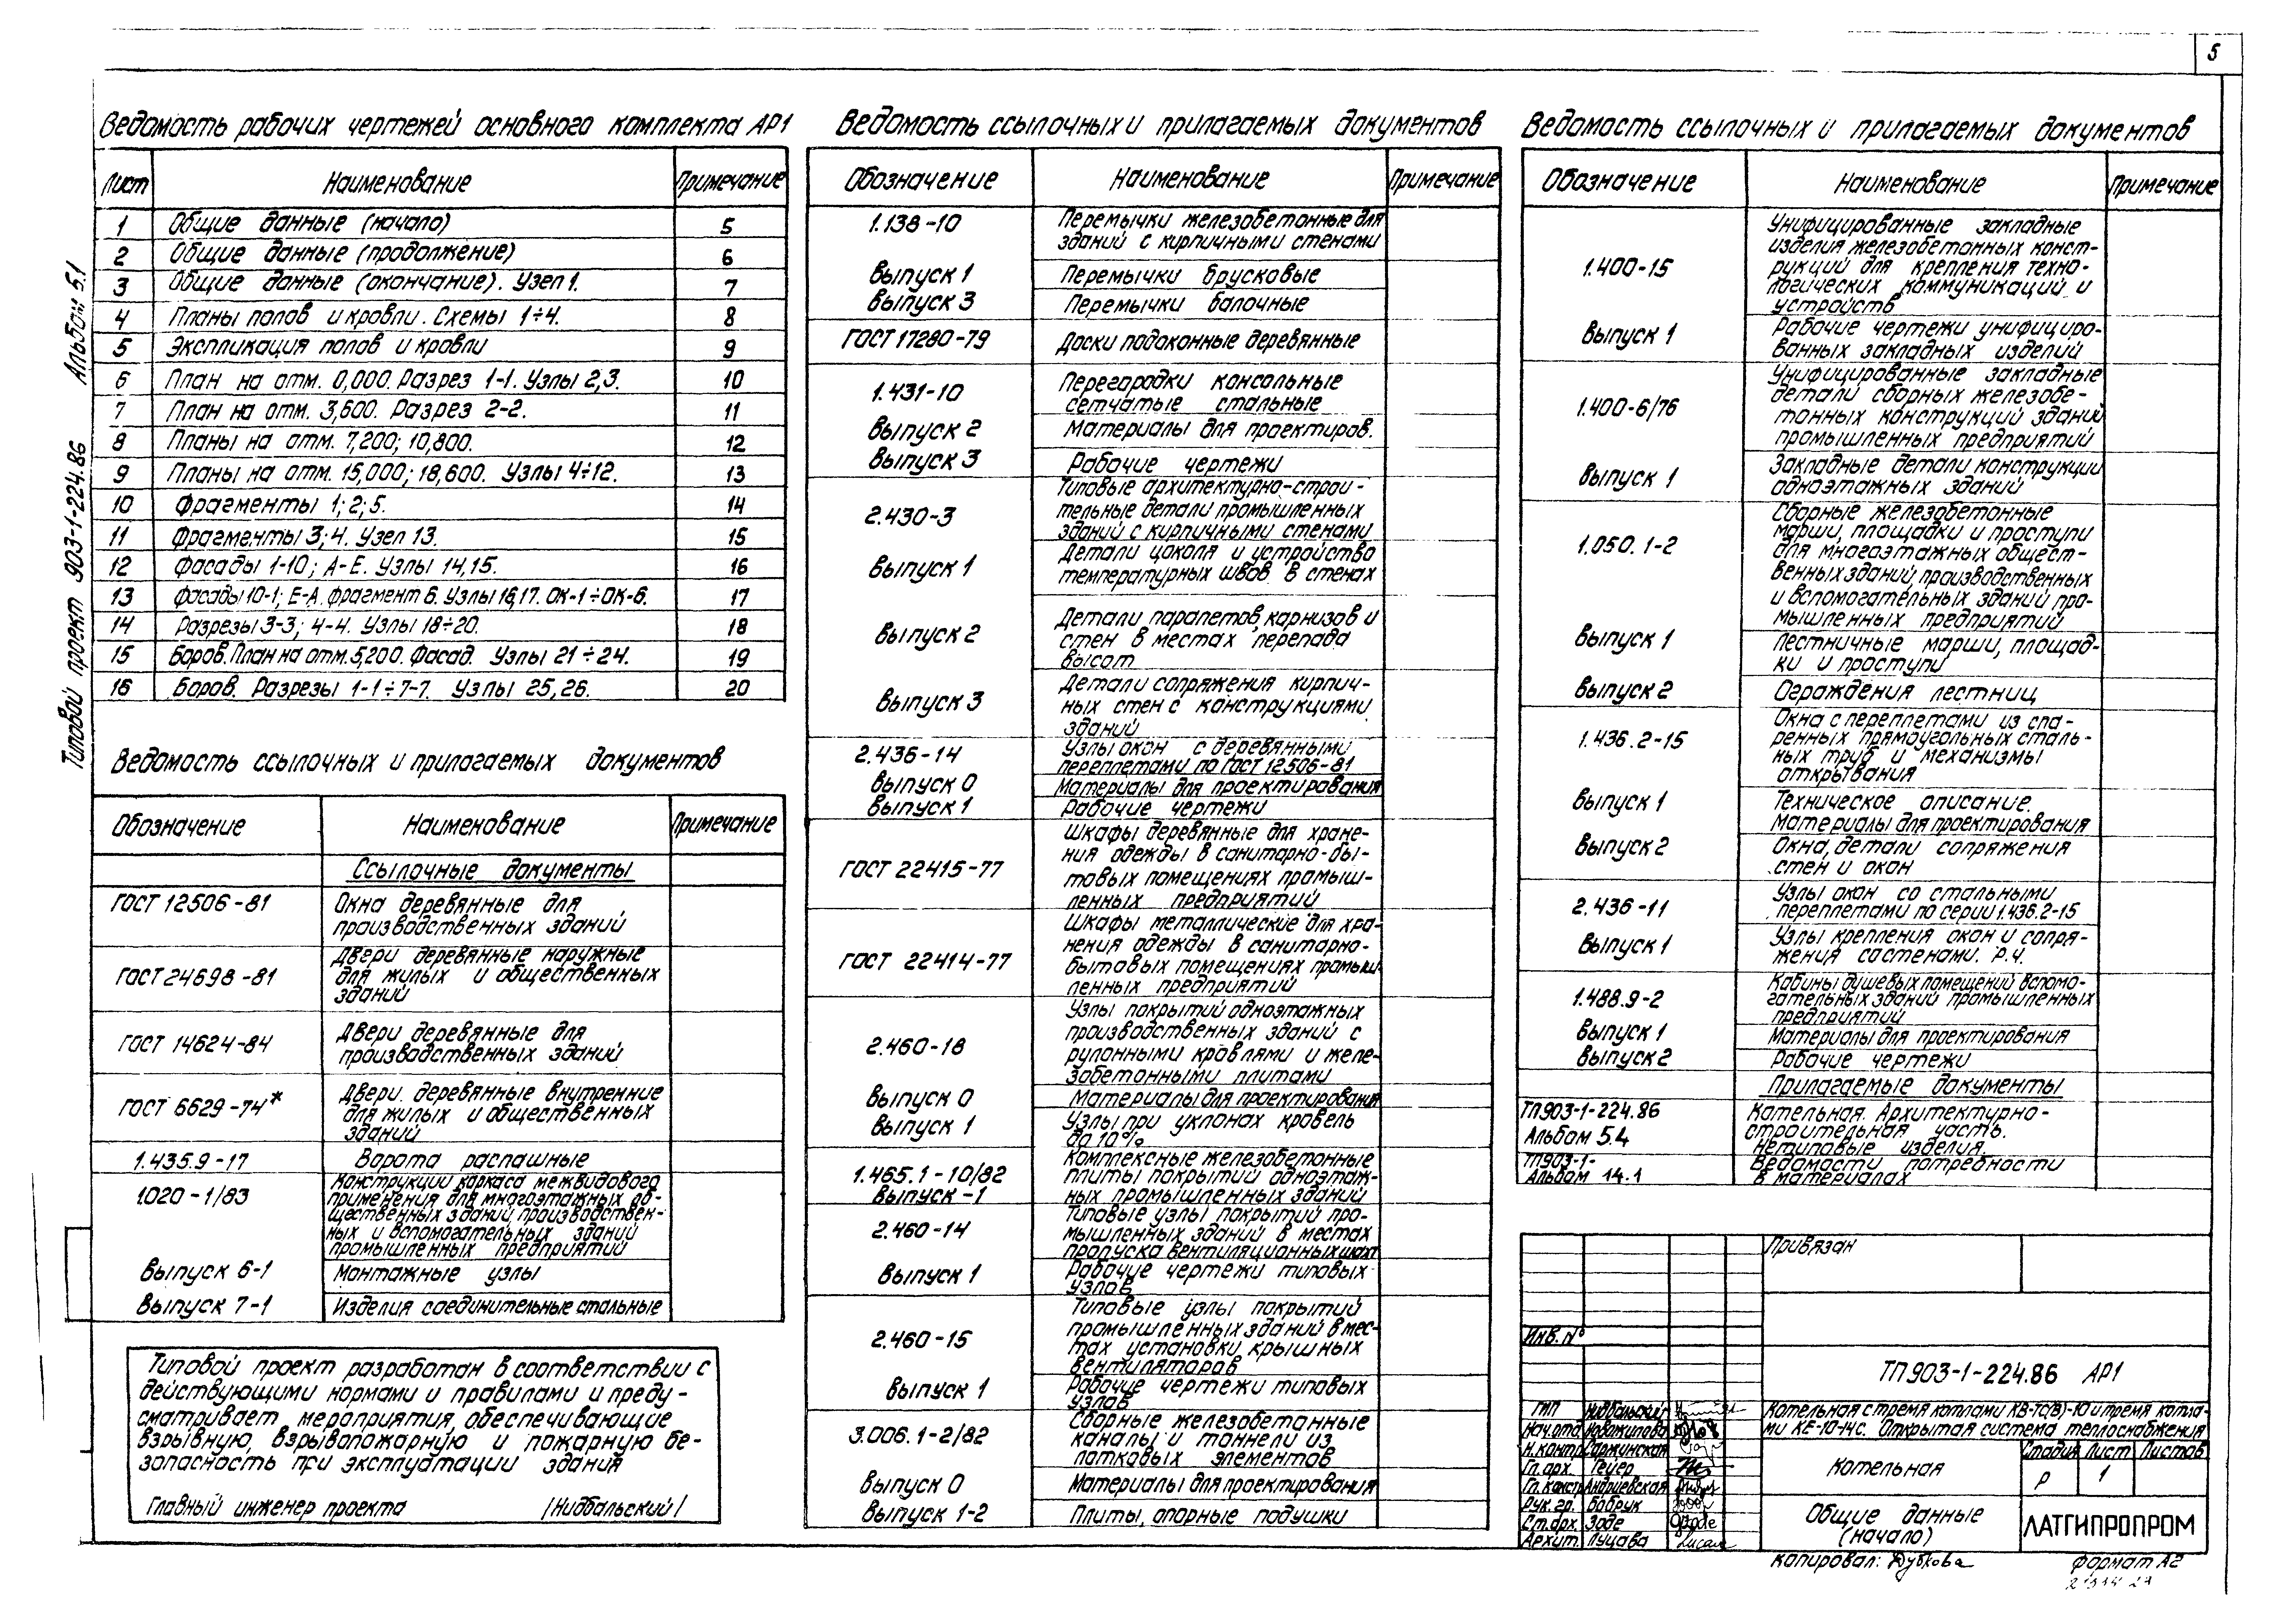 5
Типовой проект 903-1-224.86 Альбом 5.1
Ведомость рабочих чертежей основного комплекта АР1
Лист Наименование Примечание
1 Общие данные (начало) 5
2 Общие данные (продолжение) 6
3 Общие данные (окончание). Узел 1. 7
4 Планы полов и кровли. Схемы 1÷4. 8
5 Экспликация полов и кровли 9
6 План на отм. 0,000. Разрез 1-1. Узлы 2,3. 10
7 План на отм. 3,600. Разрез 2-2. 11
8 Планы на отм. 7,200; 10,800. 12
9 Планы на отм. 15,000; 18,600. Узлы 4÷12. 13
10 Фрагменты 1; 2; 5. 14
11 Фрагменты 3; 4. Узел 13. 15
12 Фасады 1-10; А-Е. Узлы 14,15. 16
13 Фасады 10-1; Е-А. Фрагмент 6. Узлы 16,17. ОК-1÷ОК-6. 17
14 Разрезы 3-3; 4-4. Узлы 18÷20. 18
15 Боров. План на отм. 5,200. Фасад. Узлы 21÷24. 19
16 Боров. Разрезы 1-1÷7-7. Узлы 25,26. 20
Ведомость ссылочных и прилагаемых документов
Обозначение Наименование Примечание
Ссылочные документы
ГОСТ 12506-81 Окна деревянные для
производственных зданий
ГОСТ 24698-81 Двери деревянные наружные
для жилых и общественных
зданий
ГОСТ 14624-84 Двери деревянные для
производственных зданий
ГОСТ 6629-74* Двери деревянные внутренние
для жилых и общественных
зданий
1.435.9-17 Ворота распашные
1.020-1/83 Конструкции каркаса межвидового
применения для многоэтажных об-
щественных зданий, производствен-
ных и вспомогательных зданий
промышленных предприятий
Выпуск 6-1 Монтажные узлы
Выпуск 7-1 Изделия соединительные стальные
Типовой проект разработан в соответствии с
действующими нормами и правилами и преду-
сматривает мероприятия, обеспечивающие
взрывную, взрывопожарную и пожарную бе-
зопасность при эксплуатации здания
Главный инженер проекта /Нидбальский/
Ведомость ссылочных и прилагаемых документов
Обозначение Наименование Примечание
1.138-10 Перемычки железобетонные для
зданий с кирпичными стенами
Выпуск 1 Перемычки брусковые
Выпуск 3 Перемычки балочные
ГОСТ 17280-79 Доски подоконные деревянные
1.431-10 Перегородки консольные
сетчатые стальные
Выпуск 2 Материалы для проектиров.
Выпуск 3 Рабочие чертежи
2.430-3 Типовые архитектурно-строи-
тельные детали промышленных
зданий с кирпичными стенами
Выпуск 1 Детали цоколя и устройство
температурных швов в стенах
Выпуск 2 Детали парапетов, карнизов и
стен в местах перепада
высот
Выпуск 3 Детали сопряжения кирпич-
ных стен с конструкциями
зданий
2.436-14 Узлы окон с деревянными
переплетами по ГОСТ 12506-81
Выпуск 0 Материалы для проектирования
Выпуск 1 Рабочие чертежи
ГОСТ 22415-77 Шкафы деревянные для хране-
ния одежды в санитарно-бы-
товых помещениях промыш-
ленных предприятий
ГОСТ 22414-77 Шкафы металлические для хра-
нения одежды в санитарно-
бытовых помещениях промыш-
ленных предприятий
2.460-18 Узлы покрытий одноэтажных
производственных зданий с
рулонными кровлями и желе-
зобетонными плитами
Выпуск 0 Материалы для проектирования
Выпуск 1 Узлы при уклонах кровель
до 10%
1.465.1-10/82 Комплексные железобетонные
плиты покрытий одноэтаж-
Выпуск-1 ных промышленных зданий
2.460-14 Типовые узлы покрытий про-
мышленных зданий в местах
пропуска вентиляционных шахт
Выпуск 1 Рабочие чертежи типовых
узлов
2.460-15 Типовые узлы покрытий
промышленных зданий в мес-
тах установки крышных
вентиляторов
Выпуск 1 Рабочие чертежи типовых
узлов
3.006.1-2/82 Сборные железобетонные
каналы и тоннели из
лотковых элементов
Выпуск 0 Материалы для проектирования
Выпуск 1-2 Плиты, опорные подушки
Ведомость ссылочных и прилагаемых документов
Обозначение Наименование Примечание
1.400-15 Унифицированные закладные
изделия железобетонных конст-
рукций для крепления техно-
логических коммуникаций и
устройств
Выпуск 1 Рабочие чертежи унифициро-
ванных закладных изделий
1.400-6/76 Унифицированные закладные
детали сборных железобе-
тонных конструкций зданий
промышленных предприятий
Выпуск 1 Закладные детали конструкции
одноэтажных зданий
1.050.1-2 Сборные железобетонные
марши, площадки и проступи
для многоэтажных общест-
венных зданий, производственных
и вспомогательных зданий про-
мышленных предприятий
Выпуск 1 Лестничные марши, площад-
ки и проступи
Выпуск 2 Ограждения лестниц
1.436.2-15 Окна с переплетами из спа-
ренных прямоугольных сталь-
ных труб и механизмы
открывания
Выпуск 1 Техническое описание.
Материалы для проектирования
Выпуск 2 Окна, детали сопряжения
стен и окон
2.436-11 Узлы окон со стальными
переплетами по серии 1.436.2-15
Выпуск 1 Узлы крепления окон и сопря-
жения со стенами. Р.ч.
1.488.9-2 Кабины душевых помещений вспомо-
гательных зданий промышленных
предприятий
Выпуск 1 Материалы для проектирования
Выпуск 2 Рабочие чертежи
Прилагаемые документы
ТП903-1-224.86 Котельная. Архитектурно-
Альбом 5.4 строительная часть.
Нетиповые изделия.
ТП903-1- Ведомости потребности
Альбом 14.1 в материалах
Привязан
Инв. №
ТП903-1-224.86 АР1
ГИП Нидбальский
Нач.отд. Новожилова
Н.контр. Саржинская
Гл.арх. Гейер
Гл.констр. Андриевская
Рук.гр. Бабрук
Ст.арх. Зоде
Архит. Луцава
Котельная с тремя котлами КВ-ТС(В)-10 и тремя котла-
ми КЕ-10-14с. Открытая система теплоснабжения
Котельная
Стадия Лист Листов
Р 1
Общие данные
(начало)
ЛАТГИПРОПРОМ
Копировал: Дубкова Формат А2